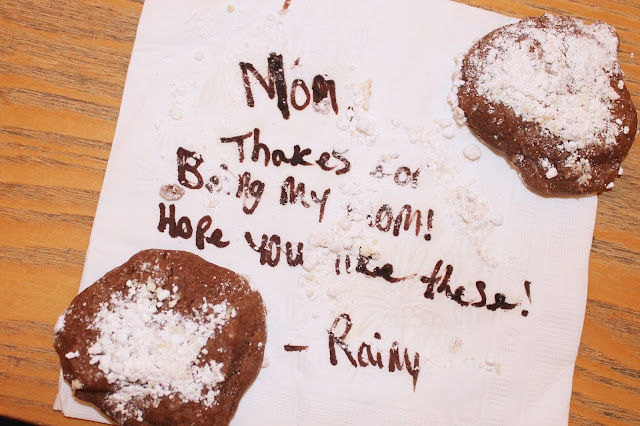 Mom,
Thakes for
Being my mom!
Hope you like these!
- Rainy